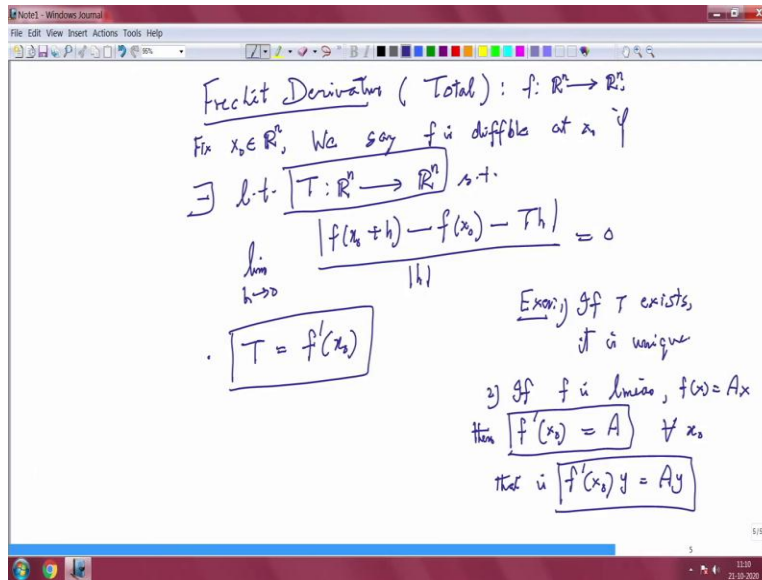 Note1 - Windows Journal
File Edit View Insert Actions Tools Help
95%
Frechét Derivative (Total): f: ℝⁿ → ℝⁿ.
Fix x₀ ∈ ℝⁿ, We say f is diffble at x₀ if
∃ l.t. T: ℝⁿ → ℝⁿ s.t.
lim h→0 |f(x₀ + h) − f(x₀) − Th| / |h| = 0
T = f'(x₀)
Exer: 1) If T exists,
it is unique
2) If f is linear, f(x) = Ax
then f'(x₀) = A ∀ x₀
that is f'(x₀) y = Ay
5/5
5
11:10
21-10-2020